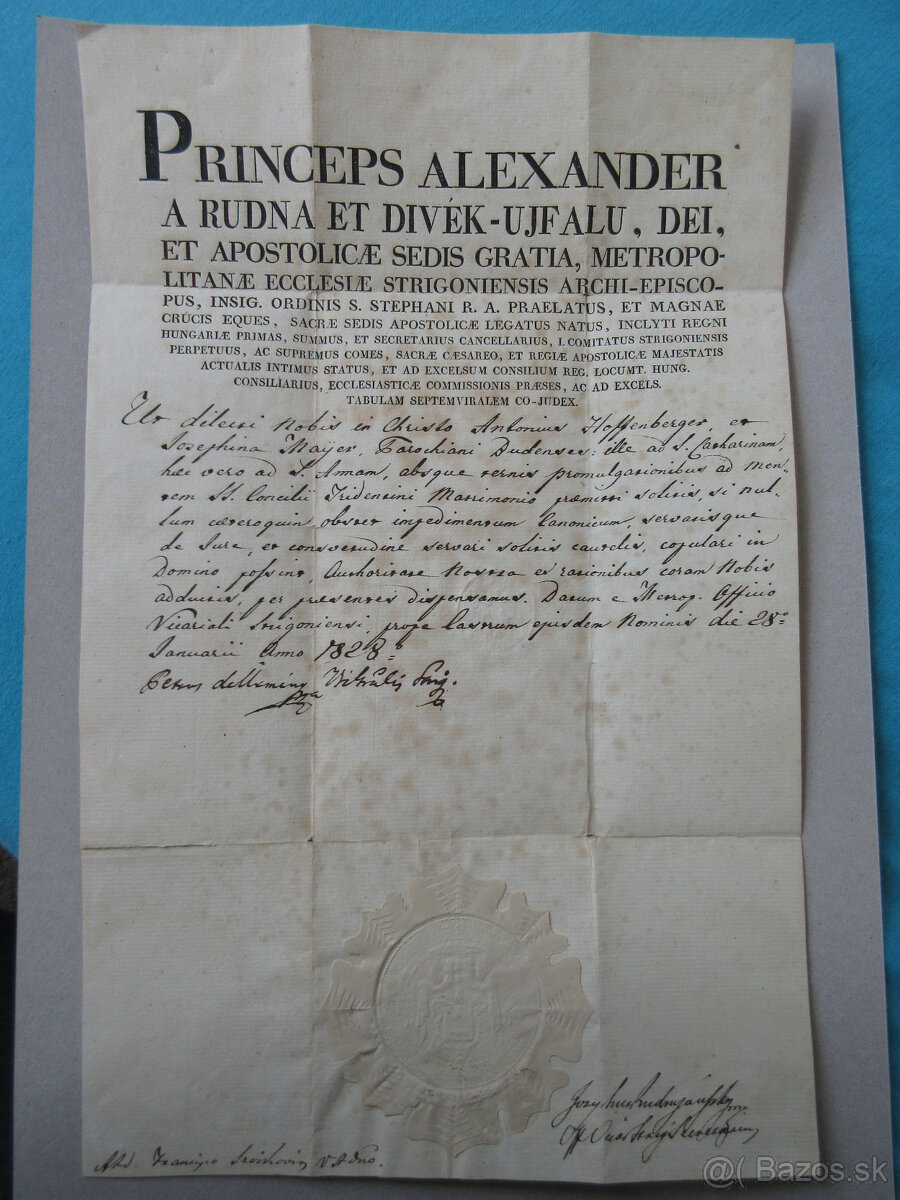 PRINCEPS ALEXANDER
A RUDNA ET DIVÉK-UJFALU, DEI,
ET APOSTOLICÆ SEDIS GRATIA, METROPO-
LITANÆ ECCLESIÆ STRIGONIENSIS ARCHI-EPISCO-
PUS, INSIG. ORDINIS S. STEPHANI R. A. PRAELATUS, ET MAGNAE
CRUCIS EQUES, SACRÆ SEDIS APOSTOLICÆ LEGATUS NATUS, INCLYTI REGNI
HUNGARIÆ PRIMAS, SUMMUS, ET SECRETARIUS CANCELLARIUS, I. COMITATUS STRIGONIENSIS
PERPETUUS, AC SUPREMUS COMES, SACRÆ CÆSAREO, ET REGIÆ APOSTOLICÆ MAJESTATIS
ACTUALIS INTIMUS STATUS, ET AD EXCELSUM CONSILIUM REG. LOCUMT. HUNG.
CONSILIARIUS, ECCLESIASTICÆ COMMISSIONIS PRÆSES, AC AD EXCELS.
TABULAM SEPTEMVIRALEM CO-JUDEX.
Ut dilecti Nobis in Christo Antonius Hoffenberger, et
Josephina Mayer, Parochiani Budenses: ille ad S. Catharinam,
hæc vero ad S. Annam, absque ternis promulgationibus ad men-
tem SS. Concilii Tridentini Matrimonio præmitti solitis, si nul-
lum cæteroquin obstet impedimentum Canonicum, servatisque
de Jure, et consvetudine servari solitis cautelis, copulari in
Domino possint, Authoritate Nostra ex rationibus coram Nobis
adductis, per præsentes dispensamus. Datum e Metrop. Officio
Vicariali Strigoniensi, prope Castrum ejusdem Nominis die 28va
Januarii Anno 1828o
Petrus
Ad.
@( Bazos.sk